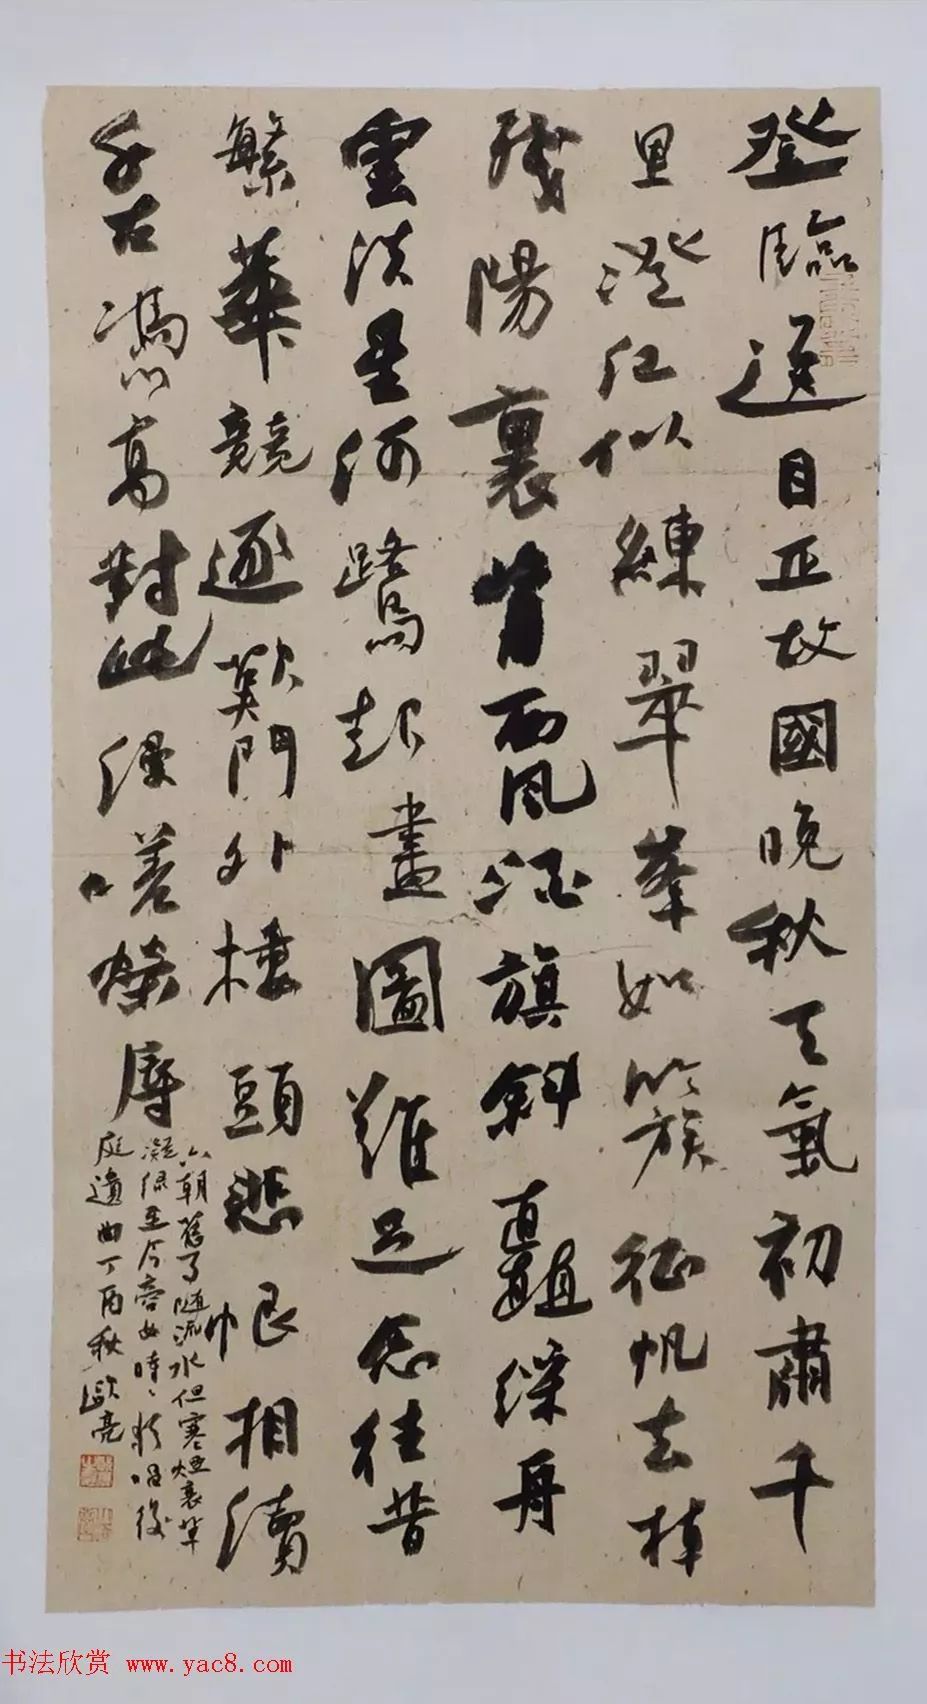 登臨送目正故國晚秋天氣初肅千
里澄江似練翠峯如簇征帆去棹
殘陽裏背西風酒旗斜矗綵舟
雲淡星河鷺起畫圖難足念往昔
繁華競逐歎門外樓頭悲恨相續
千古憑高對此漫嗟榮辱
六朝舊事隨流水但寒煙衰草
凝綠至今商女時〻猶唱後
庭遺曲丁酉秋歐亮
书法欣赏 www.yac8.com